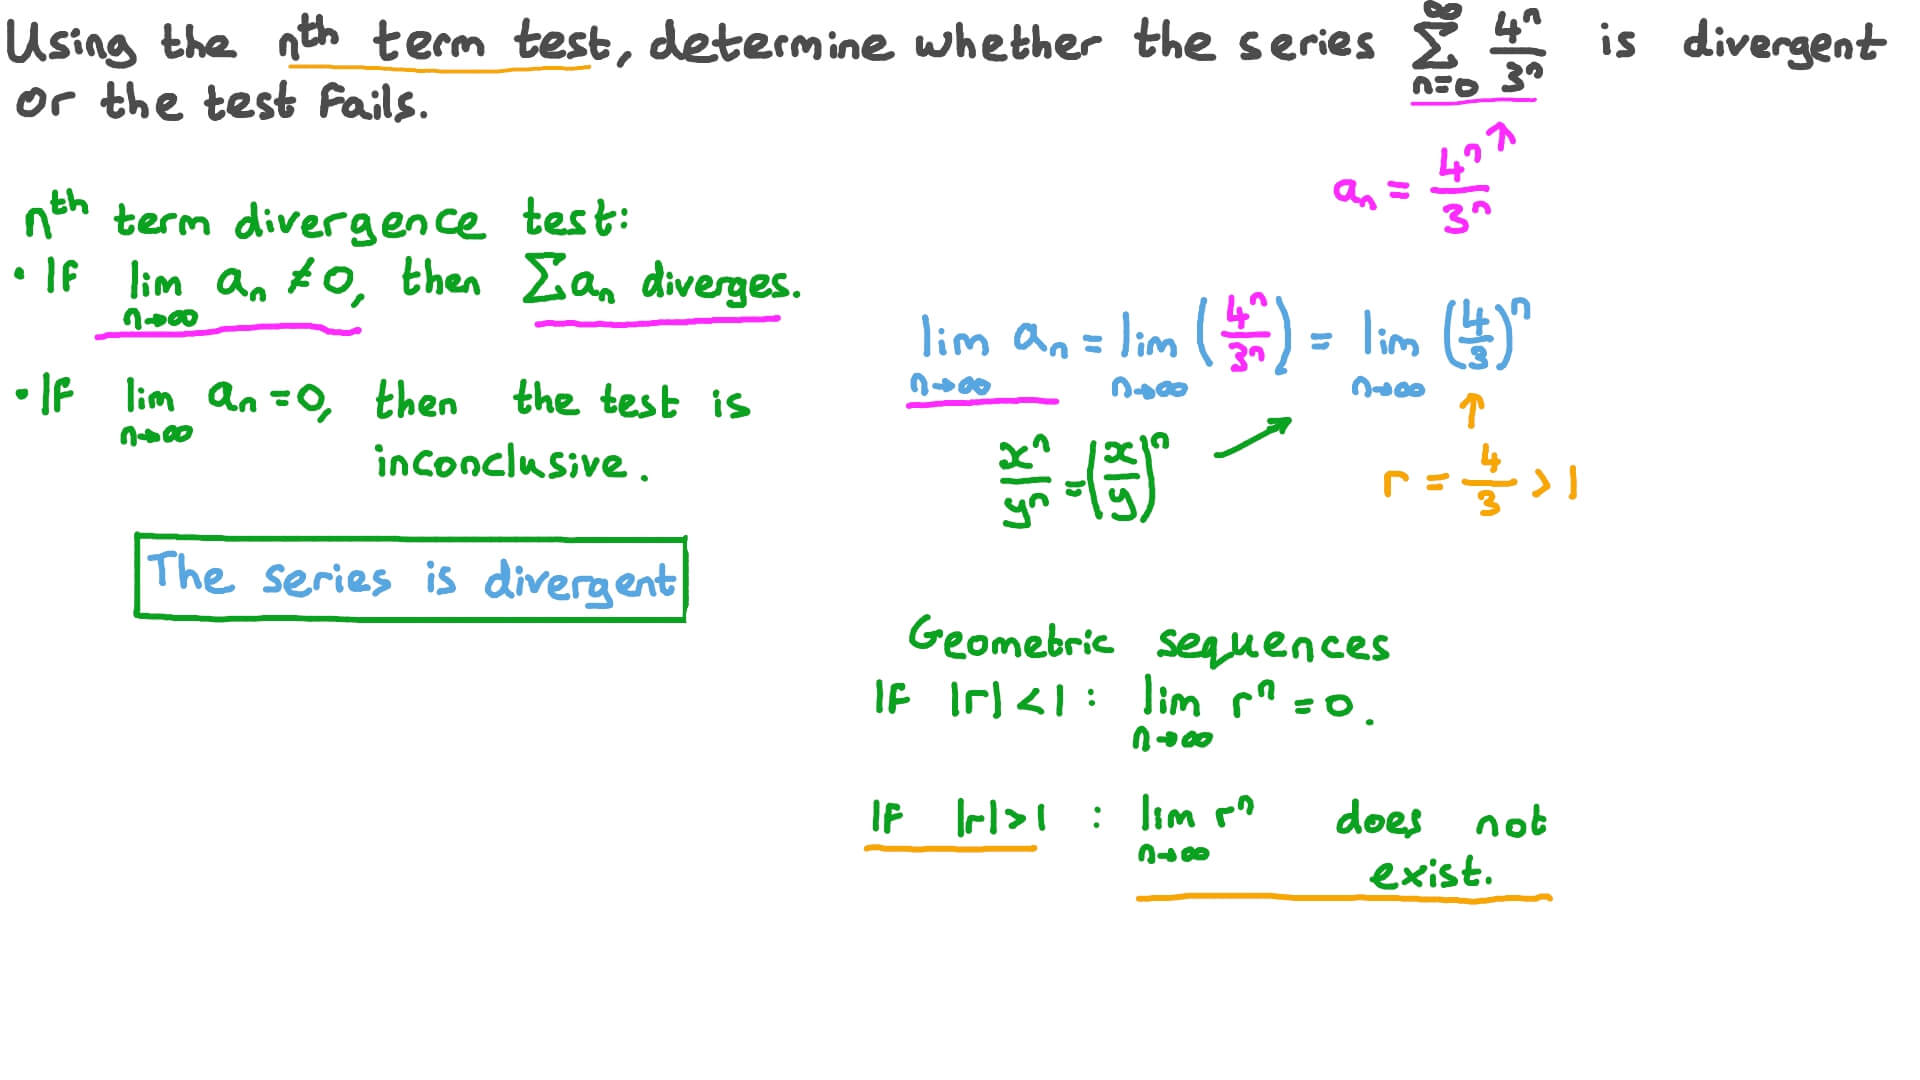 Using the nth term test, determine whether the series ∑_{n=0}^{∞} 4^n/3^n is divergent
or the test fails.
a_n = 4^n/3^n ↑
nth term divergence test:
• If lim_{n→∞} a_n ≠ 0, then ∑a_n diverges.
• If lim_{n→∞} a_n = 0, then the test is
inconclusive.
The series is divergent
lim_{n→∞} a_n = lim_{n→∞} (4^n/3^n) = lim_{n→∞} (4/3)^n
x^n/y^n = (x/y)^n
r = 4/3 > 1
Geometric sequences
If |r| < 1 : lim_{n→∞} r^n = 0.
If |r| > 1 : lim_{n→∞} r^n does not
exist.